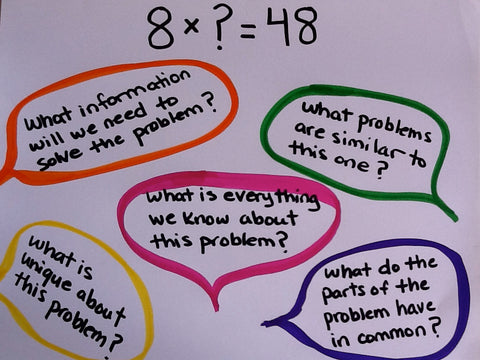 8 × ? = 48
What information
will we need to
solve the problem?
What problems
are similar to
this one?
What is everything
we know about
this problem?
What is
unique about
this problem?
What do the
parts of the
problem have
in common?